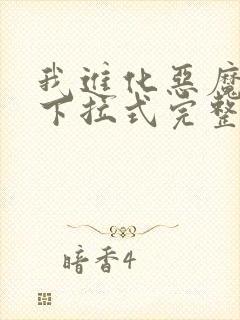 我进化恶魔
下拉式完整
暗香4